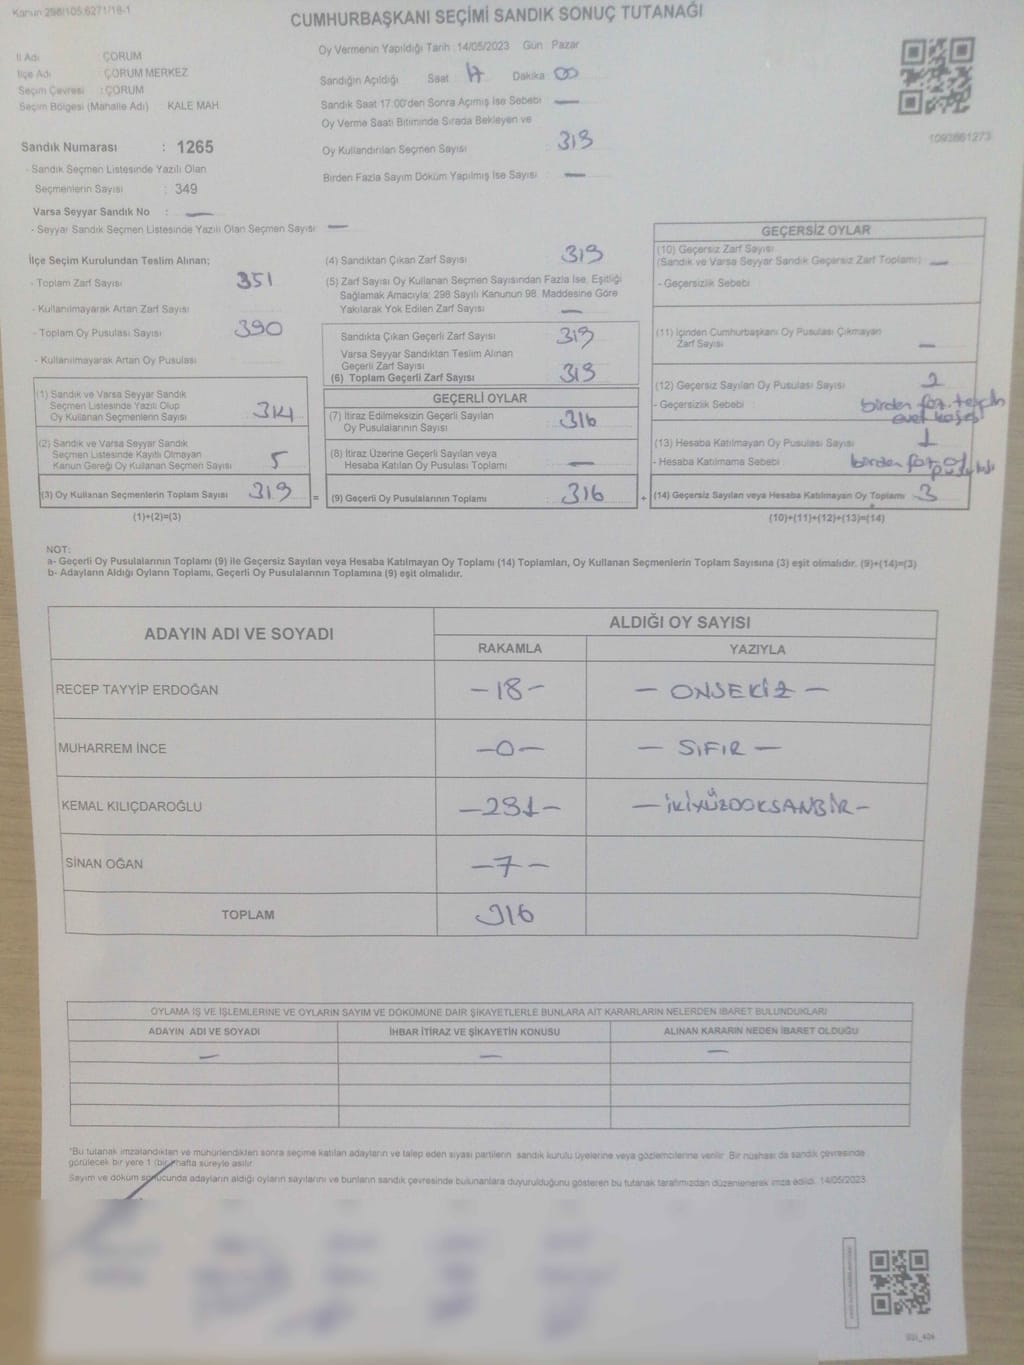 Kanun 298/105,6271/18-1
CUMHURBAŞKANI SEÇİMİ SANDIK SONUÇ TUTANAĞI
İl Adı : ÇORUM
İlçe Adı : ÇORUM MERKEZ
Seçim Çevresi : ÇORUM
Seçim Bölgesi (Mahalle Adı) : KALE MAH.
Sandık Numarası : 1265
- Sandık Seçmen Listesinde Yazılı Olan
Seçmenlerin Sayısı : 349
Varsa Seyyar Sandık No : —
- Seyyar Sandık Seçmen Listesinde Yazılı Olan Seçmen Sayısı: —
Oy Vermenin Yapıldığı Tarih :14/05/2023 Gün Pazar
Sandığın Açıldığı Saat 17 Dakika 00
Sandık Saat 17:00'den Sonra Açımış İse Sebebi : —
Oy Verme Saati Bitiminde Sırada Bekleyen ve
Oy Kullandırılan Seçmen Sayısı : 319
Birden Fazla Sayım Döküm Yapılmış İse Sayısı : —
1093861273
İlçe Seçim Kurulundan Teslim Alınan;
- Toplam Zarf Sayısı : 351
- Kullanılmayarak Artan Zarf Sayısı :
- Toplam Oy Pusulası Sayısı : 390
- Kullanılmayarak Artan Oy Pusulası :
(1) Sandık ve Varsa Seyyar Sandık
Seçmen Listesinde Yazılı Olup
Oy Kullanan Seçmenlerin Sayısı : 314
(2) Sandık ve Varsa Seyyar Sandık
Seçmen Listesinde Kayıtlı Olmayan
Kanun Gereği Oy Kullanan Seçmen Sayısı : 5
(3) Oy Kullanan Seçmenlerin Toplam Sayısı : 319 =
(1)+(2)=(3)
(4) Sandıktan Çıkan Zarf Sayısı : 319
(5) Zarf Sayısı Oy Kullanan Seçmen Sayısından Fazla İse, Eşitliği
Sağlamak Amacıyla; 298 Sayılı Kanunun 98. Maddesine Göre
Yakılarak Yok Edilen Zarf Sayısı : —
Sandıkta Çıkan Geçerli Zarf Sayısı : 319
Varsa Seyyar Sandıktan Teslim Alınan
Geçerli Zarf Sayısı :
(6) Toplam Geçerli Zarf Sayısı : 319
GEÇERLİ OYLAR
(7) İtiraz Edilmeksizin Geçerli Sayılan
Oy Pusulalarının Sayısı : 316
(8) İtiraz Üzerine Geçerli Sayılan veya
Hesaba Katılan Oy Pusulası Toplamı : —
(9) Geçerli Oy Pusulalarının Toplamı : 316 +
GEÇERSİZ OYLAR
(10) Geçersiz Zarf Sayısı
(Sandık ve Varsa Seyyar Sandık Geçersiz Zarf Toplamı) : —
- Geçersizlik Sebebi :
(11) İçinden Cumhurbaşkanı Oy Pusulası Çıkmayan
Zarf Sayısı : —
(12) Geçersiz Sayılan Oy Pusulası Sayısı : 2
- Geçersizlik Sebebi : birden faz. tercih
evet kaşesi
(13) Hesaba Katılmayan Oy Pusulası Sayısı : 1
- Hesaba Katılmama Sebebi : birden faz. oy
pusulası
(14) Geçersiz Sayılan veya Hesaba Katılmayan Oy Toplamı : 3
(10)+(11)+(12)+(13)=(14)
NOT:
a- Geçerli Oy Pusulalarının Toplamı (9) ile Geçersiz Sayılan veya Hesaba Katılmayan Oy Toplamı (14) Toplamları, Oy Kullanan Seçmenlerin Toplam Sayısına (3) eşit olmalıdır. (9)+(14)=(3)
b- Adayların Aldığı Oyların Toplamı, Geçerli Oy Pusulalarının Toplamına (9) eşit olmalıdır.
ADAYIN ADI VE SOYADI ALDIĞI OY SAYISI
RAKAMLA YAZIYLA
RECEP TAYYİP ERDOĞAN —18— — ONSEKİZ —
MUHARREM İNCE —0— — SIFIR —
KEMAL KILIÇDAROĞLU —291— —İKİYÜZDOKSANBİR—
SİNAN OĞAN —7—
TOPLAM 316
OYLAMA İŞ VE İŞLEMLERİNE VE OYLARIN SAYIM VE DÖKÜMÜNE DAİR ŞİKAYETLERLE BUNLARA AİT KARARLARIN NELERDEN İBARET BULUNDUKLARI
ADAYIN ADI VE SOYADI İHBAR İTİRAZ VE ŞİKAYETİN KONUSU ALINAN KARARIN NEDEN İBARET OLDUĞU
— — —
*Bu tutanak imzalandıktan ve mühürlendikten sonra seçime katılan adayların ve talep eden siyasi partilerin sandık kurulu üyelerine veya gözlemcilerine verilir. Bir nüshası da sandık çevresinde
görülecek bir yere 1 (bir) hafta süreyle asılır.
Sayım ve döküm sonucunda adayların aldığı oyların sayılarını ve bunların sandık çevresinde bulunanlara duyurulduğunu gösteren bu tutanak tarafımızdan düzenlenerek imza edildi. 14/05/2023